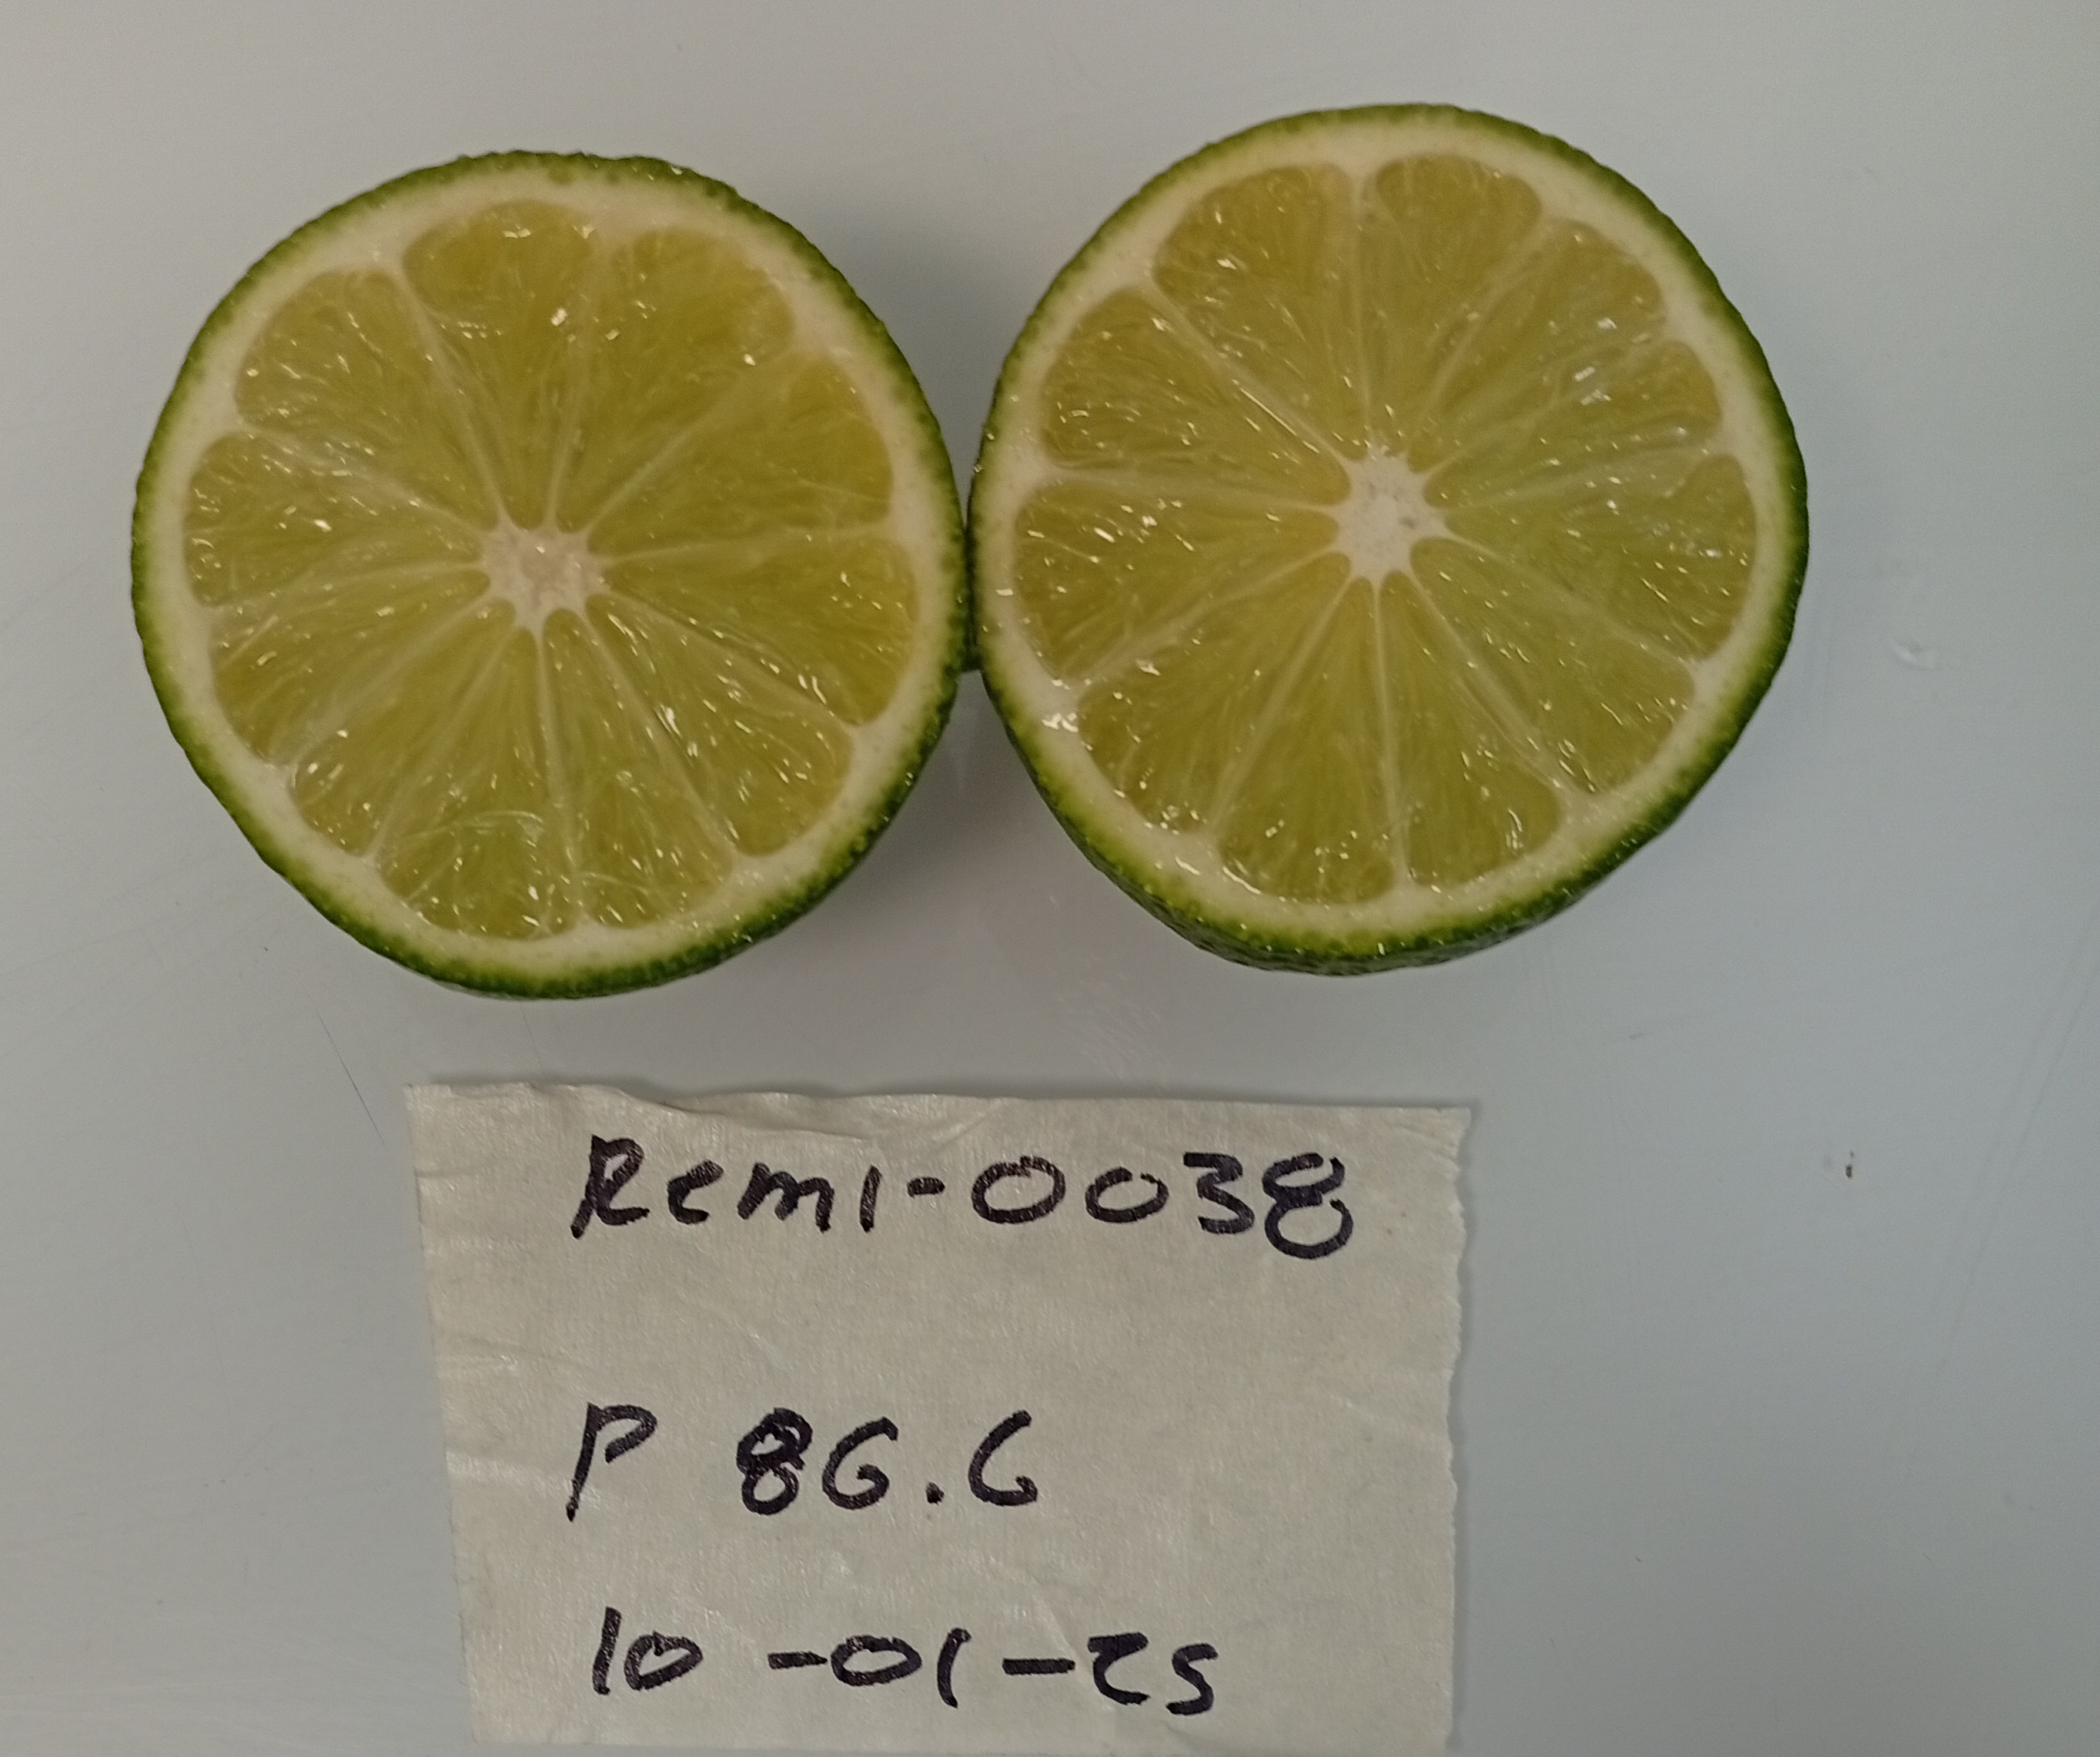 Remi-0038
P 86.6
10-01-25